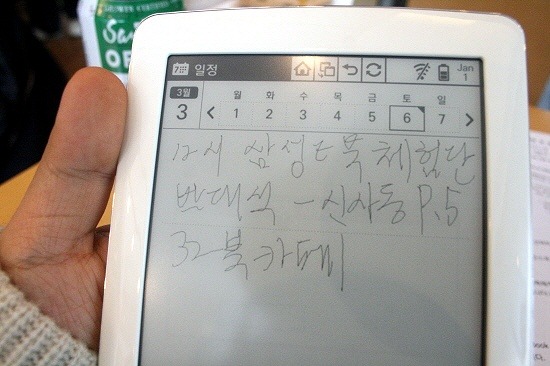 7 일정 Jan
1
3월 월 화 수 목 금 토 일
3 < 1 2 3 4 5 6 7 >
12시 삼성 E북 체험단
- 신사동 P.5
32 북카페